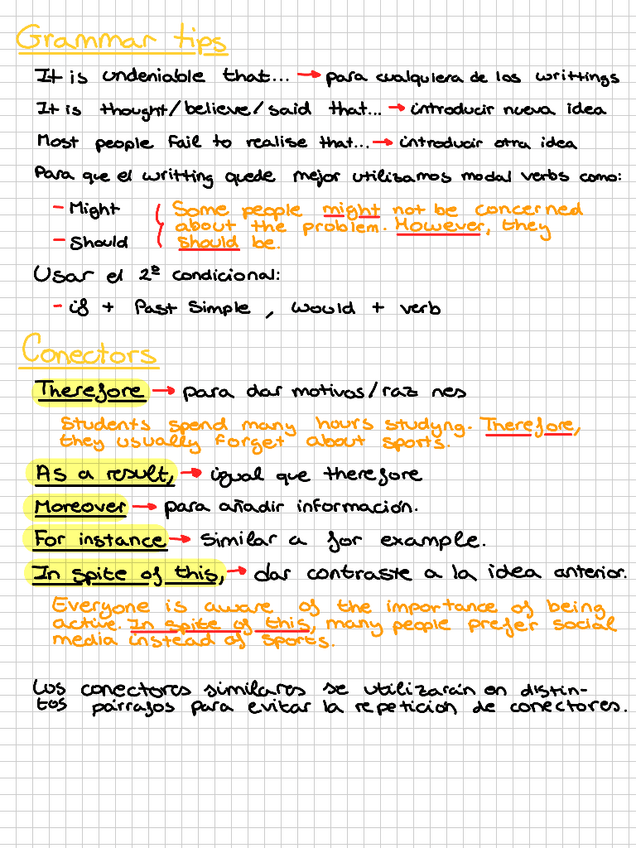 Grammar tips
It is undeniable that... → para cualquiera de los writtings
It is thought/believe/said that... → introducir nueva idea
Most people fail to realise that... → introducir otra idea
Para que el writting quede mejor utilizamos modal verbs como:
- Might
- Should
Some people might not be concerned
about the problem. However, they
should be.
Usar el 2º condicional:
- if + Past Simple, would + verb
Conectors
Therefore → para dar motivos/raz nes
Students spend many hours studyng. Therefore,
they usually forget about sports.
As a result, → igual que therefore
Moreover → para añadir información.
For instance → similar a for example.
In spite of this, → dar contraste a la idea anterior.
Everyone is aware of the importance of being
active. In spite of this, many people prefer social
media instead of sports.
Los conectores similares se utilizarán en distin-
tos párrafos para evitar la repetición de conectores.